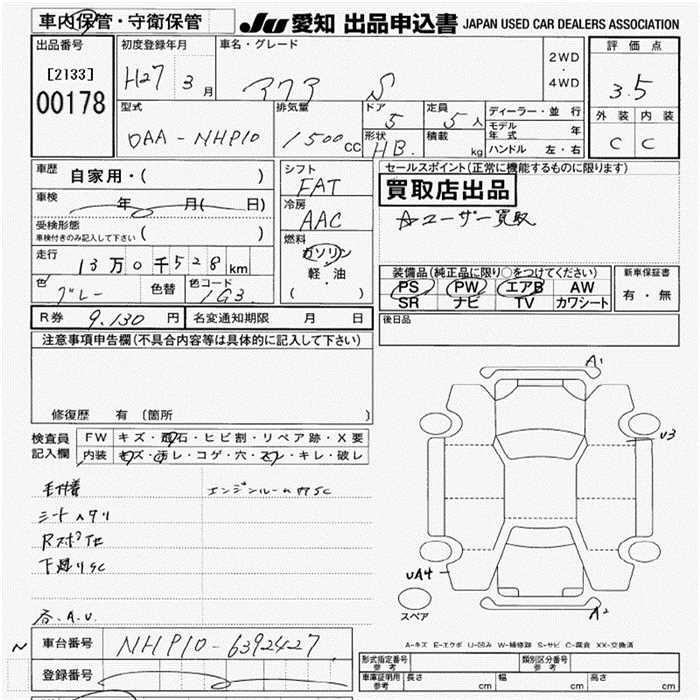 車内保管・守衛保管
JU 愛知 出品申込書 JAPAN USED CAR DEALERS ASSOCIATION
出品番号
[2133]
00178
初度登録年月
H27 3 月
車名・グレード
アクア S
2WD
・
4WD
評価点
3.5
外装 内装
C C
型式
DAA-NHP10
排気量
1500 cc
ドア
5
定員
5 人
形状
HB.
積載
kg
ディーラー・並行
モデル年式 年
ハンドル 左・右
車歴
自家用・( )
車検
年 月( 日)
受検形態
車検付きのみ記入して下さい ( )
走行
13万0千528 km
色
グレー
色替
色コード
1G3
シフト
FAT
冷房
AAC
燃料
ガソリン
軽・油
( )
セールスポイント(正常に機能するものに限ります)
買取店出品
☆ユーザー買取
装備品(純正品に限り○をつけてください)
PS PW エアB AW
SR ナビ TV カワシート
新車保証書
有・無
R券 9.130 円
名変通知期限 月 日
後日品
注意事項申告欄(不具合内容等は具体的に記入して下さい)
修復歴 有 〔箇所 〕
検査員
記入欄
FW キズ・飛石・ヒビ割・リペア跡・X要
内装 キズ・汚レ・コゲ・穴・スレ・キレ・破レ
毛付着
エンジンルーム内SC
シートヘタリ
下廻りSC
A.U.
A1
U3
UA4
A2
スペア
A-キズ E-エクボ U-凹み W-補修跡 S-サビ C-腐食 XX-交換済
N
車台番号
NHP10-6392427
登録番号
型式指定番号
参考
類別区分番号
参考
車庫証明用
参考
長さ cm 幅 cm 高さ cm